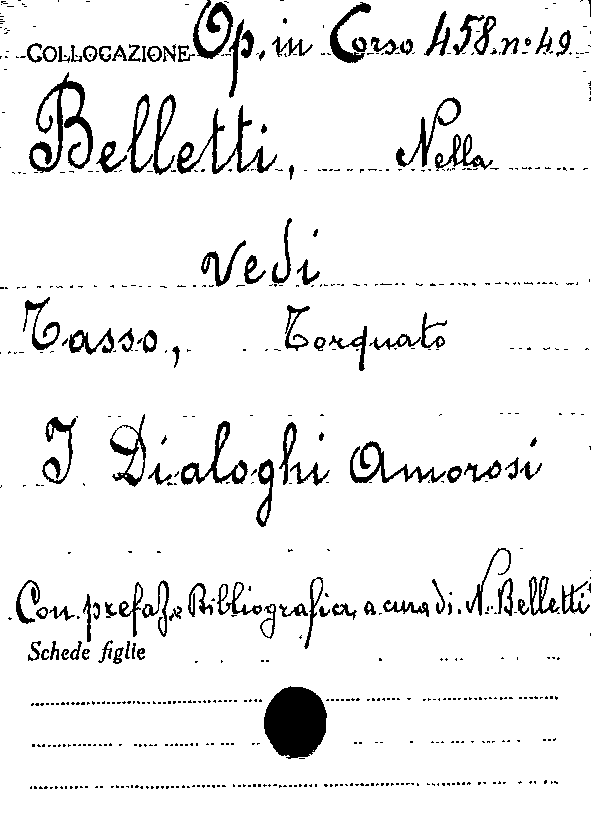 COLLOCAZIONE Op. in Corso 458. n° 49
Belletti, Nella
vedi
Tasso, Torquato
I Dialoghi Amorosi
Con prefaz. e Bibliografia, a cura di N. Belletti
Schede figlie